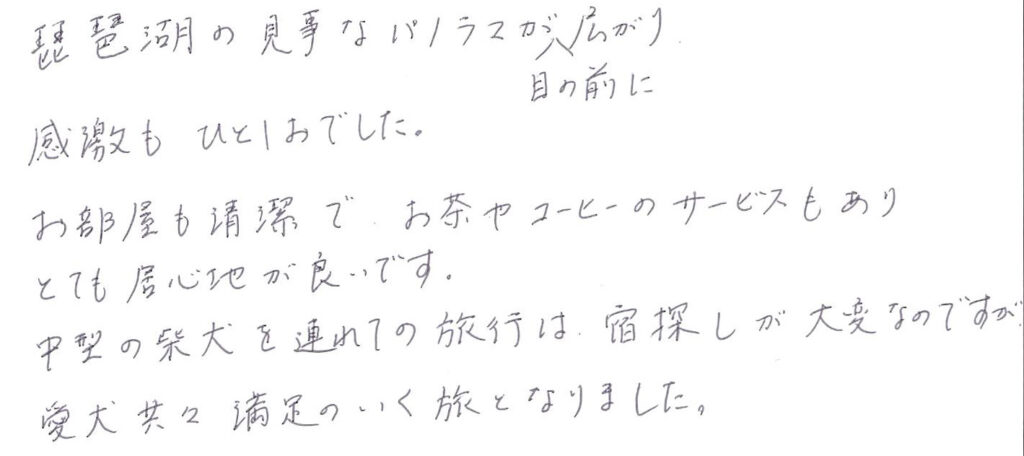 琵琶湖の見事なパノラマが広がり
目の前に
感激もひとしおでした。
お部屋も清潔で お茶やコーヒーのサービスもあり
とても居心地が良いです。
中型の柴犬を連れての旅行は 宿探しが大変なのですが
愛犬共々 満足のいく旅となりました。